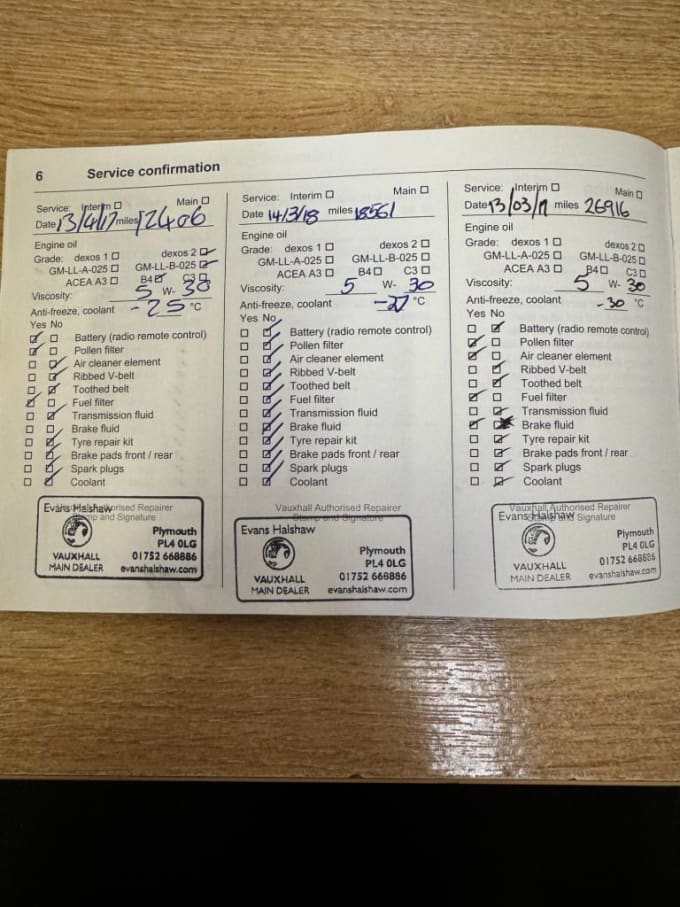 6 Service confirmation
Service: Interim ☐ Main ☐
Date 13/4/17 miles 12406
Engine oil
Grade: dexos 1 ☐ dexos 2 ☑
GM-LL-A-025 ☐ GM-LL-B-025 ☑
ACEA A3 ☐ B4 ☑ C3 ☐
Viscosity: 5 W- 30
Anti-freeze, coolant -25 °C
Yes No
☑ ☐ Battery (radio remote control)
☑ ☐ Pollen filter
☐ ☑ Air cleaner element
☐ ☑ Ribbed V-belt
☐ ☑ Toothed belt
☑ ☐ Fuel filter
☐ ☑ Transmission fluid
☐ ☑ Brake fluid
☐ ☑ Tyre repair kit
☐ ☑ Brake pads front / rear
☐ ☑ Spark plugs
☐ ☑ Coolant
Vauxhall Authorised Repairer
Stamp and Signature
Evans Halshaw
VAUXHALL
MAIN DEALER
Plymouth
PL4 0LG
01752 668886
evanshalshaw.com
Service: Interim ☐ Main ☐
Date 14/3/18 miles 18561
Engine oil
Grade: dexos 1 ☐ dexos 2 ☐
GM-LL-A-025 ☐ GM-LL-B-025 ☐
ACEA A3 ☐ B4 ☐ C3 ☐
Viscosity: 5 W- 30
Anti-freeze, coolant -27 °C
Yes No
☐ ☑ Battery (radio remote control)
☐ ☑ Pollen filter
☐ ☑ Air cleaner element
☐ ☑ Ribbed V-belt
☐ ☑ Toothed belt
☐ ☑ Fuel filter
☐ ☑ Transmission fluid
☐ ☑ Brake fluid
☐ ☑ Tyre repair kit
☐ ☑ Brake pads front / rear
☐ ☑ Spark plugs
☐ ☑ Coolant
Vauxhall Authorised Repairer
Stamp and Signature
Evans Halshaw
VAUXHALL
MAIN DEALER
Plymouth
PL4 0LG
01752 668886
evanshalshaw.com
Service: Interim ☐ Main ☐
Date 13/03/ miles 26916
Engine oil
Grade: dexos 1 ☐ dexos 2 ☐
GM-LL-A-025 ☐ GM-LL-B-025 ☐
ACEA A3 ☐ B4 ☐ C3 ☐
Viscosity: 5 W- 30
Anti-freeze, coolant -30 °C
Yes No
☐ ☑ Battery (radio remote control)
☑ ☐ Pollen filter
☑ ☐ Air cleaner element
☐ ☑ Ribbed V-belt
☐ ☑ Toothed belt
☑ ☐ Fuel filter
☐ ☑ Transmission fluid
☑ ☐ Brake fluid
☐ ☑ Tyre repair kit
☐ ☑ Brake pads front / rear
☐ ☑ Spark plugs
☐ ☑ Coolant
Vauxhall Authorised Repairer
Stamp and Signature
Evans Halshaw
VAUXHALL
MAIN DEALER
Plymouth
PL4 0LG
01752 668886
evanshalshaw.com